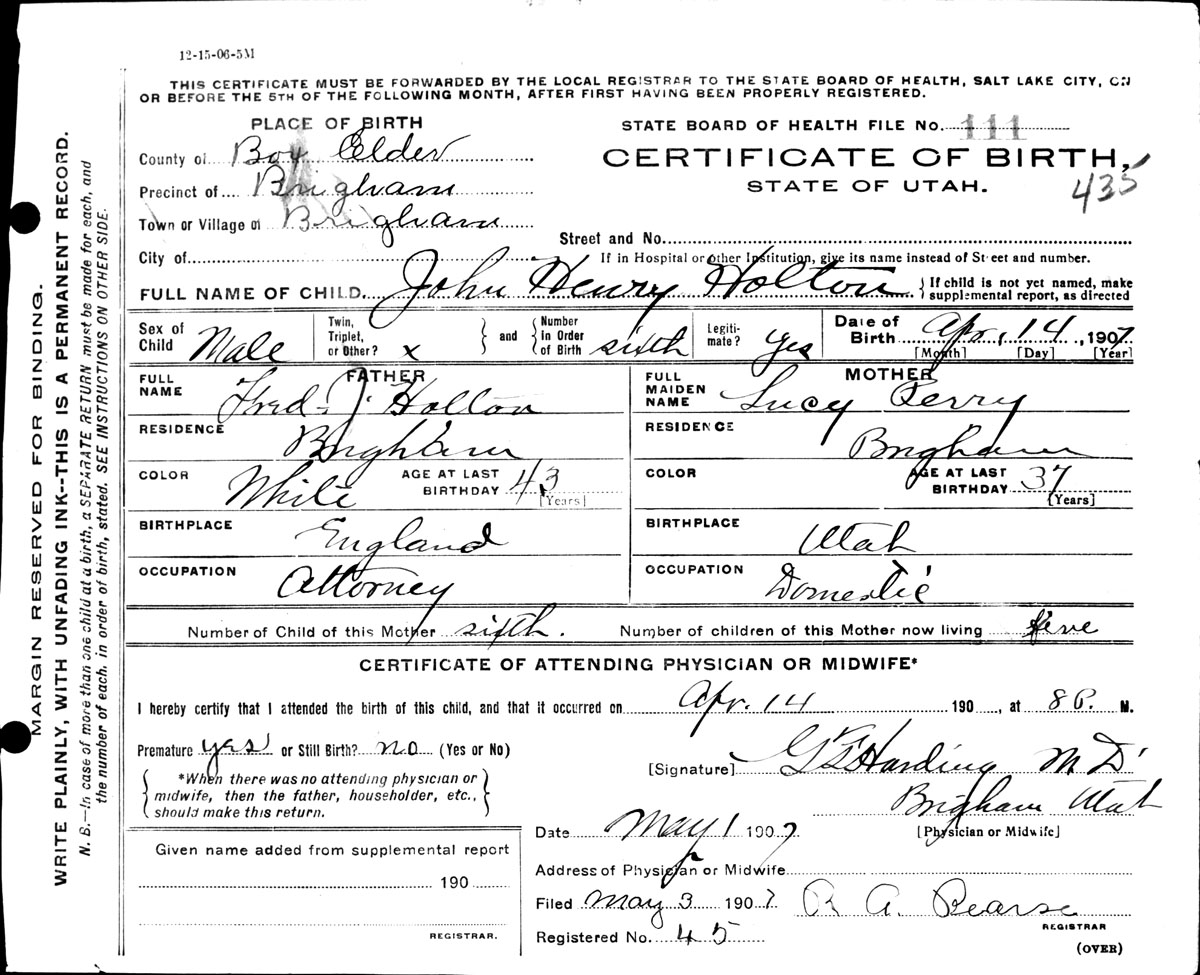 12-15-06-5M
THIS CERTIFICATE MUST BE FORWARDED BY THE LOCAL REGISTRAR TO THE STATE BOARD OF HEALTH, SALT LAKE CITY, ON
OR BEFORE THE 5TH OF THE FOLLOWING MONTH, AFTER FIRST HAVING BEEN PROPERLY REGISTERED.
PLACE OF BIRTH
County of Box Elder
Precinct of Brigham
Town or Village of Brigham
City of
STATE BOARD OF HEALTH FILE No. 111
CERTIFICATE OF BIRTH,
STATE OF UTAH.
435
Street and No.
If in Hospital or other Institution, give its name instead of Street and number.
FULL NAME OF CHILD John Henry Holton { If child is not yet named, make
supplemental report, as directed
Sex of Child Male
Twin, Triplet, or Other? x } and { Number in Order of Birth sixth
Legitimate? yes
Date of Birth Apr, 14, 1907
[Month] [Day] [Year]
FATHER
FULL NAME Fred J. Holton
RESIDENCE Brigham
COLOR White AGE AT LAST BIRTHDAY 43
[Years]
BIRTHPLACE England
OCCUPATION Attorney
MOTHER
FULL MAIDEN NAME Lucy Perry
RESIDENCE Brigham
COLOR AGE AT LAST BIRTHDAY 37
[Years]
BIRTHPLACE Utah
OCCUPATION Domestic
Number of Child of this Mother sixth. Number of children of this Mother now living five
CERTIFICATE OF ATTENDING PHYSICIAN OR MIDWIFE*
I hereby certify that I attended the birth of this child, and that it occurred on Apr. 14 190 , at 8 P. M.
Premature yes or Still Birth? no (Yes or No)
{ *When there was no attending physician or
midwife, then the father, householder, etc.,
should make this return. }
[Signature] Harding M D
Brigham Utah
[Physician or Midwife]
Date May 1 1907
Address of Physician or Midwife
Filed May 3 1907 R A. Pearse
REGISTRAR
Registered No. 45
(OVER)
Given name added from supplemental report
190
REGISTRAR.
MARGIN RESERVED FOR BINDING.
WRITE PLAINLY, WITH UNFADING INK--THIS IS A PERMANENT RECORD.
N. B.—In case of more than one child at a birth, a SEPARATE RETURN must be made for each, and
the number of each, in order of birth, stated. SEE INSTRUCTIONS ON OTHER SIDE.